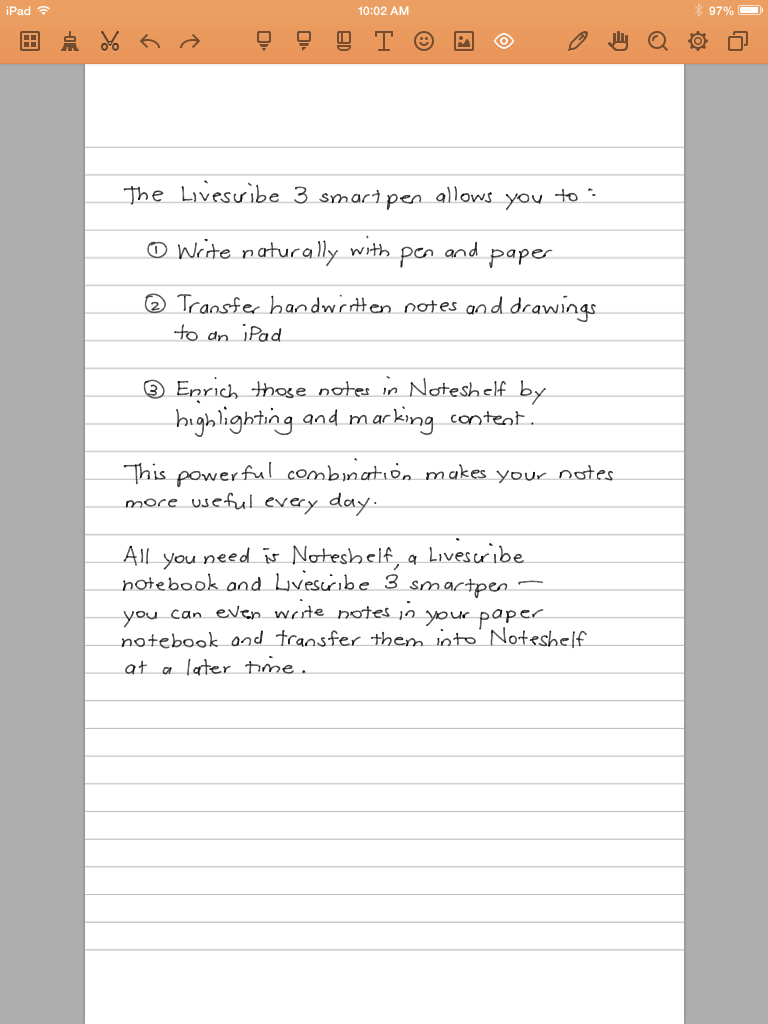 iPad 10:02 AM 97%
The Livescribe 3 smartpen allows you to :
① Write naturally with pen and paper
② Transfer handwritten notes and drawings
to an iPad
③ Enrich those notes in Noteshelf by
highlighting and marking content.
This powerful combination makes your notes
more useful every day.
All you need is Noteshelf, a Livescribe
notebook and Livescribe 3 smartpen —
you can even write notes in your paper
notebook and transfer them into Noteshelf
at a later time.